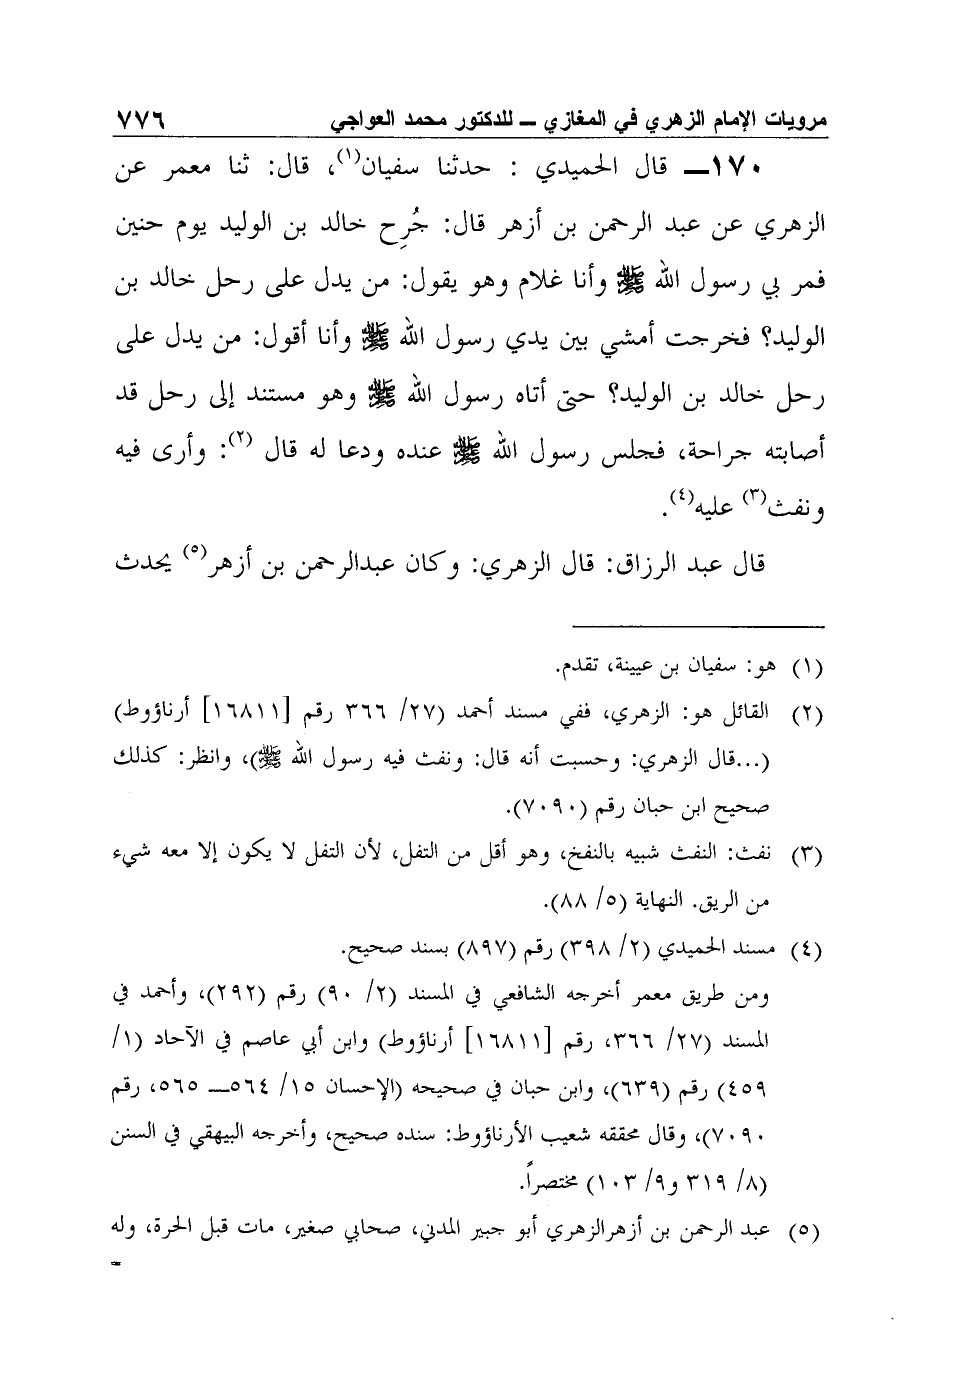 مرويات الإمام الزهري في المغازي ــ للدكتور محمد العواجي ٧٧٦
١٧٠ــ قال الحميدي : حدثنا سفيان(١)، قال: ثنا معمر عن
الزهري عن عبد الرحمن بن أزهر قال: جُرِح خالد بن الوليد يوم حنين
فمر بي رسول الله ﷺ وأنا غلام وهو يقول: من يدل على رحل خالد بن
الوليد؟ فخرجت أمشي بين يدي رسول الله ﷺ وأنا أقول: من يدل على
رحل خالد بن الوليد؟ حتى أتاه رسول الله ﷺ وهو مستند إلى رحل قد
أصابته جراحة، فجلس رسول الله ﷺ عنده ودعا له قال (٢): وأرى فيه
ونفث(٣) عليه(٤).
قال عبد الرزاق: قال الزهري: وكان عبدالرحمن بن أزهر(٥) يحدث
(١) هو: سفيان بن عيينة، تقدم.
(٢) القائل هو: الزهري، ففي مسند أحمد (٢٧/ ٣٦٦ رقم [١٦٨١١] أرناؤوط)
(...قال الزهري: وحسبت أنه قال: ونفث فيه رسول الله ﷺ)، وانظر: كذلك
صحيح ابن حبان رقم (٧٠٩٠).
(٣) نفث: النفث شبيه بالنفخ، وهو أقل من التفل، لأن التفل لا يكون إلا معه شيء
من الريق. النهاية (٥/ ٨٨).
(٤) مسند الحميدي (٢/ ٣٩٨) رقم (٨٩٧) بسند صحيح.
ومن طريق معمر أخرجه الشافعي في المسند (٢/ ٩٠) رقم (٢٩٢)، وأحمد في
المسند (٢٧/ ٣٦٦، رقم [١٦٨١١] أرناؤوط) وابن أبي عاصم في الآحاد (١/
٤٥٩) رقم (٦٣٩)، وابن حبان في صحيحه (الإحسان ١٥/ ٥٦٤ــ ٥٦٥، رقم
٧٠٩٠)، وقال محققه شعيب الأرناؤوط: سنده صحيح، وأخرجه البيهقي في السنن
(٨/ ٣١٩ و٩/ ١٠٣) مختصراً.
(٥) عبد الرحمن بن أزهرالزهري أبو جبير المدني، صحابي صغير، مات قبل الحرة، وله
=